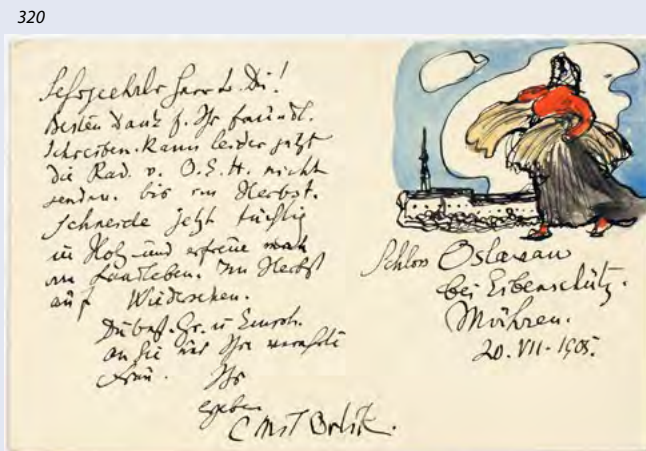 320
Sehrgeehrter Herr Dr. Di!
Besten Dank f. Ihr freundl.
Schreiben. Kann leider jetzt
die Rad. v. O.E.H. nicht
senden. bis im Herbst.
Schneide jetzt tüchtig
in Holz und erfreue mich
am Landleben. Im Herbst
auf Wiedersehen.
Gr. u
an Sie und Ihre verehrte
Frau. Ihr
ergeben
Emil Orlik.
Schloss Oslawan
bei Eibenschütz.
Mähren.
20. VII. 1905.